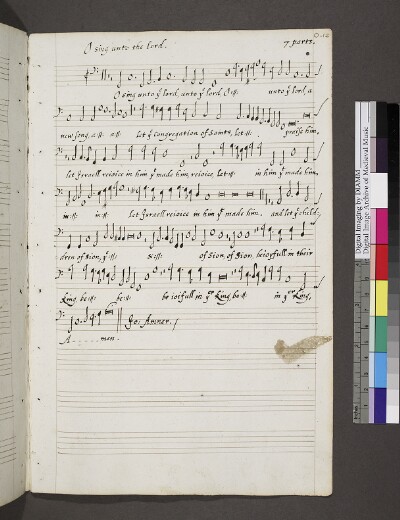 O sing unto the lord.
7. parts.
O sing unto yᵉ lord, unto yᵉ lord, O :||: unto yᵉ lord, a
new song, a :||: a :||: let yᵉ congregation of Saints, let :||: praise him,
let Israell rejoice in him yᵗ made him, rejoice, let :||: in him yᵗ made him,
in :||: in :||: let Israell rejoice in him yᵗ made him, and let yᵉ child:
dren of Sion, yᵉ :||: S :||: of Sion, of Sion, be ioyfull in their
King, be :||: be :||: be ioifull in yᵉʳ King, be :||: in yᵉʳ King,
A - - - - - men. Jo: Amner. /
Digital Imaging by DIAMM
Digital Image Archive of Medieval Music